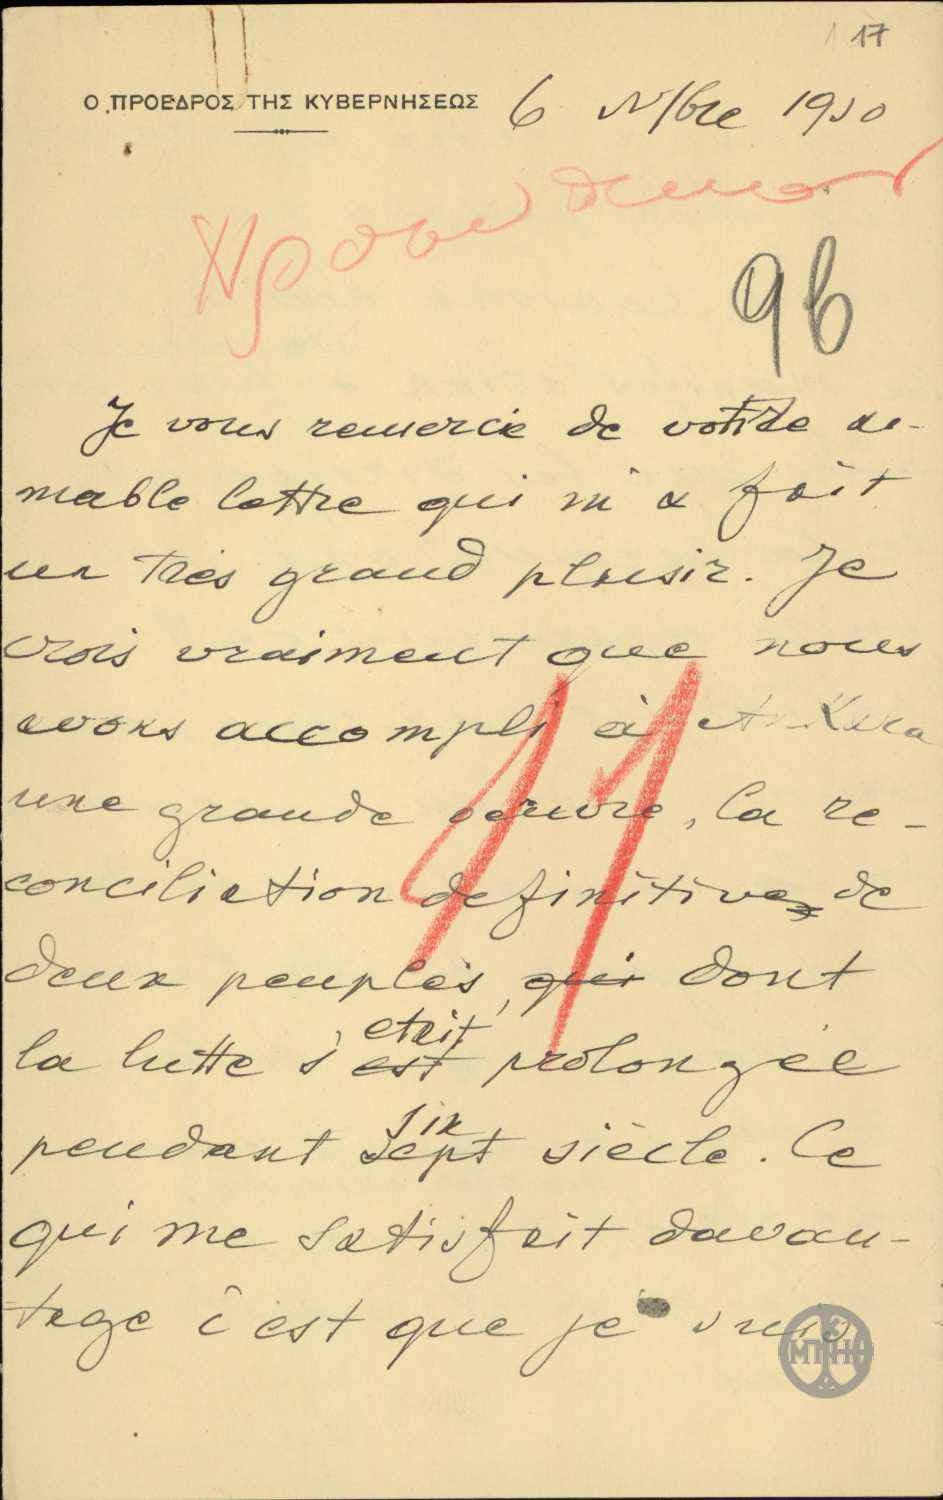 17
Ο ΠΡΟΕΔΡΟΣ ΤΗΣ ΚΥΒΕΡΝΗΣΕΩΣ 6 N/bre 1930
96
Je vous remercie de votre ai-
mable lettre qui m'a fait
un très grand plaisir. Je
crois vraiment que nous
avons accompli à Ankara
une grande oeuvre, la re-
conciliation definitive de
deux peuples, qui dont
etait
la lutte s'est prolongée
six
pendant sept siècle. Ce
qui me satisfait davan-
tage c'est que je suis
11
ΜΠΗ